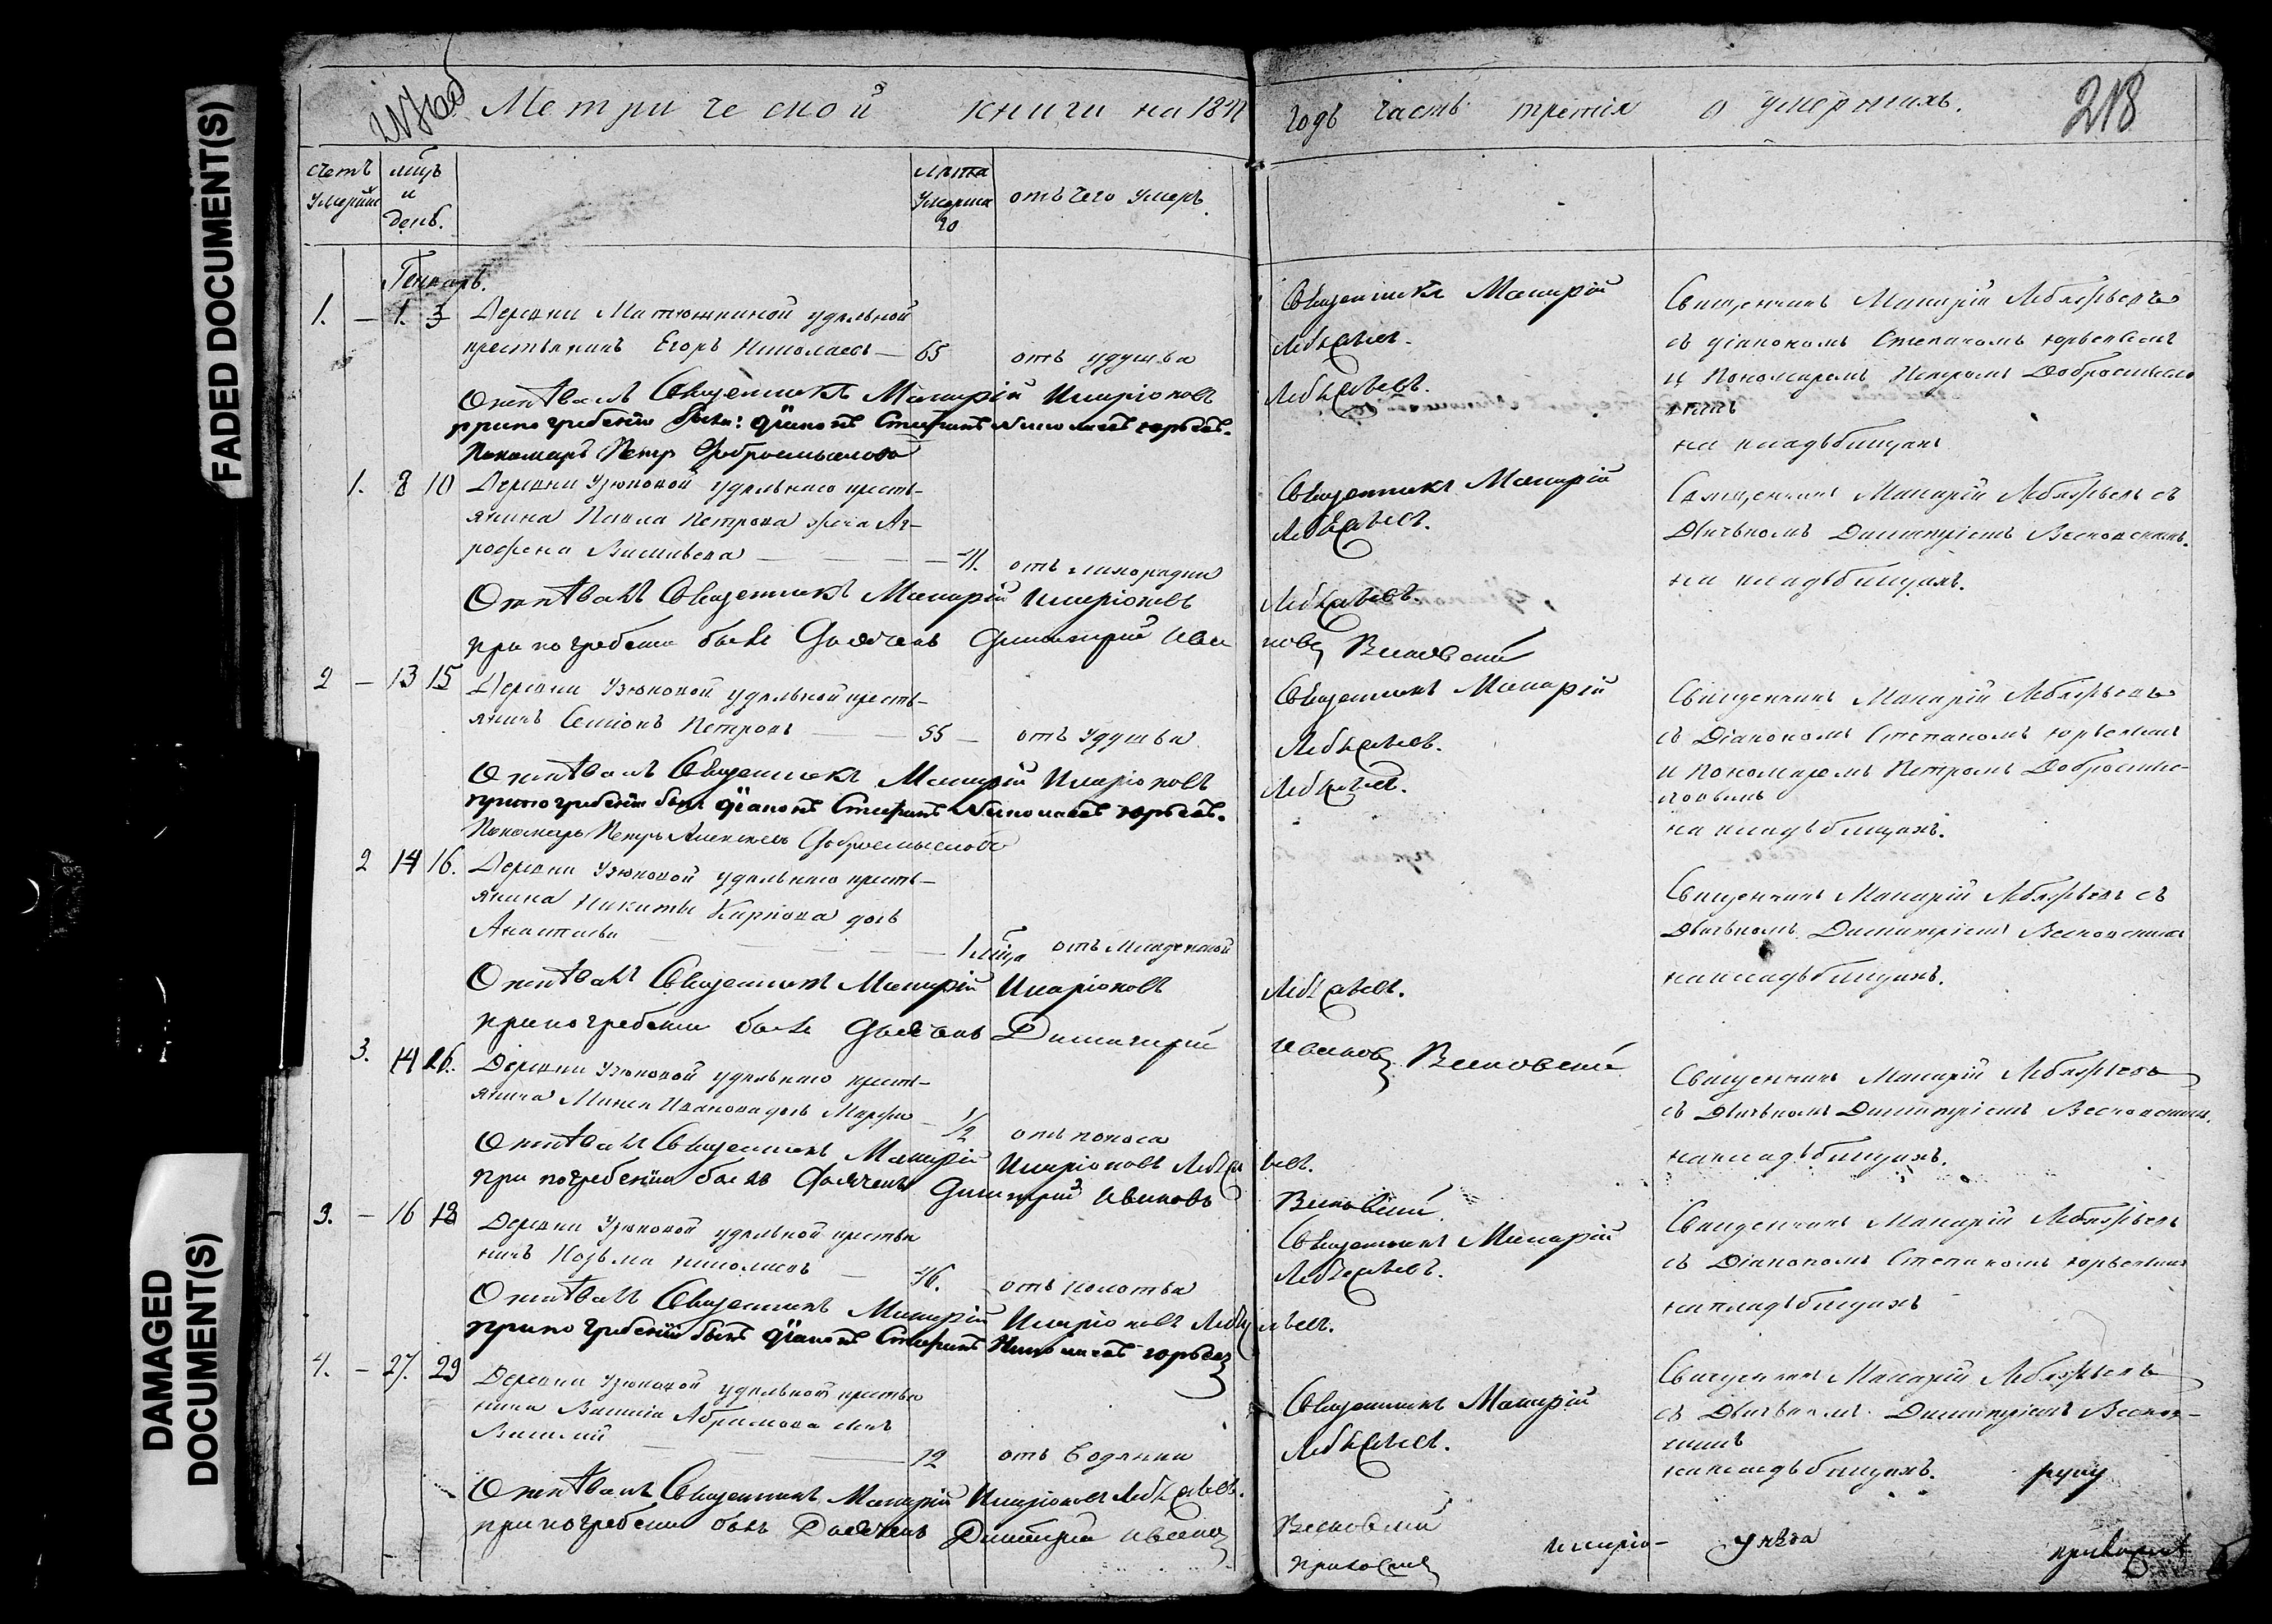 FADED DOCUMENT(S)
DAMAGED
DOCUMENT(S)
Метрической книги на 184 годъ часть третія о умершихъ.
218
счетъ умерши
мцъ и день.
лѣта умерша го
отъ чего умеръ
Генварь.
1. — 1. 3 Деревни Матюшкиной удѣльной
крестьянинъ Егоръ Николаевъ — 65 отъ удушья
Священникъ Макарій
Лебяжьевъ.
Священникъ Макарій Лебяжьевъ
съ діакономъ Степаномъ Юрьевымъ
и Пономаремъ Петромъ Добросмысло
вымъ
на кладъбищахъ
Отпѣвалъ Священникъ Макарій Иларіоновъ Лебяжьевъ.
при погребеніи былъ: Діаконъ Стефанъ Николаевъ Юрьевъ.
Пономарь Петръ Добросмысловъ
1. 8 10 Деревни Узюковой удѣльнаго кресть-
янина Павла Петрова жена Аг-
рофена Васильева — 41. отъ лихорадки
Священникъ Макарій
Лебяжьевъ.
Священникъ Макарій Лебяжьевъ съ
Дьячкомъ Димитріемъ Весновскимъ.
на кладъбищахъ.
Отпѣвалъ Священникъ Макарій Иларіоновъ Лебяжьевъ
при погребеніи былъ Дьячекъ Димитрій Ива новъ Весновскій
2 — 13 15 Деревни Узюковой удѣльной кресть-
янинъ Семіонъ Петровъ — 55 — отъ удушья
Священникъ Макарій
Лебяжьевъ.
Священникъ Макарій Лебяжьевъ
съ Діакономъ Степаномъ Юрьевымъ
и Пономаремъ Петромъ Добросмы-
словымъ
на кладъбищахъ.
Отпѣвалъ Священникъ Макарій Иларіоновъ Лебяжьевъ.
при погребеніи былъ Діаконъ Стефанъ Николаевъ Юрьевъ.
Пономарь Петръ Алексѣевъ Добросмысловъ
2 14 16. Деревни Узюковой удѣльнаго кресть-
янина Никиты Карпова дочь
Анастасія — 1 мца отъ младенской
Священникъ Макарій Лебяжьевъ съ
Дьячкомъ Димитріемъ Весновскимъ
на кладъбищахъ.
Отпѣвалъ Священникъ Макарій Иларіоновъ Лебяжьевъ.
при погребеніи былъ Дьячекъ Димитрій Ивановъ Весновскій
3. 14 16. Деревни Узюковой удѣльнаго кресть-
янина Ивана дочь Марфа — 1/2 отъ поноса
Священникъ Макарій Лебяжьевъ
съ Дьячкомъ Димитріемъ Весновскимъ.
на кладъбищахъ.
Отпѣвалъ Священникъ Макарій Иларіоновъ Лебяжьевъ.
при погребеніи былъ Дьячекъ Димитрій Ивановъ Весновскій
3. — 16 18 Деревни Узюковой удѣльной крестья
нинъ Козьма Николаевъ — 46. отъ колотья
Священникъ Макарій
Лебяжьевъ.
Священникъ Макарій Лебяжьевъ
съ Діакономъ Степаномъ Юрьевымъ
на кладъбищахъ
Отпѣвалъ Священникъ Макарій Иларіоновъ Лебяжьевъ.
при погребеніи былъ Діаконъ Стефанъ Николаевъ Юрьевъ
4. — 27. 29 Деревни Узюковой удѣльной крестья
нина Василія Абрамова сынъ
Василій — 12 отъ водянки
Священникъ Макарій
Лебяжьевъ.
Священникъ Макарій Лебяжьевъ
съ Дьячкомъ Димитріемъ Веснов-
скимъ
на кладъбищахъ. руку
Отпѣвалъ Священникъ Макарій Иларіоновъ Лебяжьевъ.
при погребеніи былъ Дьячекъ Димитрій Ивановъ Весновскій